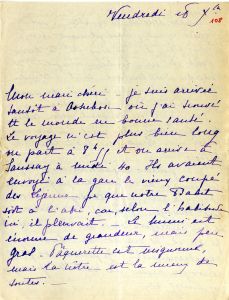 Vendredi 18 Xbre
108
Mon mari chéri - je suis arrivée
tantôt à où j'ai trouvé
tout le monde en bonne santé.
Le voyage n'est plus bien long
on part à 9h et on arrive à
à midi 40. Ils avaient
envoyé à la gare le vieux coupé
des pour que notre
soit à l'abri, car, selon l'habitude
ici, il pleuvait. - Le mimi est
énorme de grandeur, mais peu
gras. Pâquerette est mignonne,
mais la nôtre est la mieux de
toutes. -